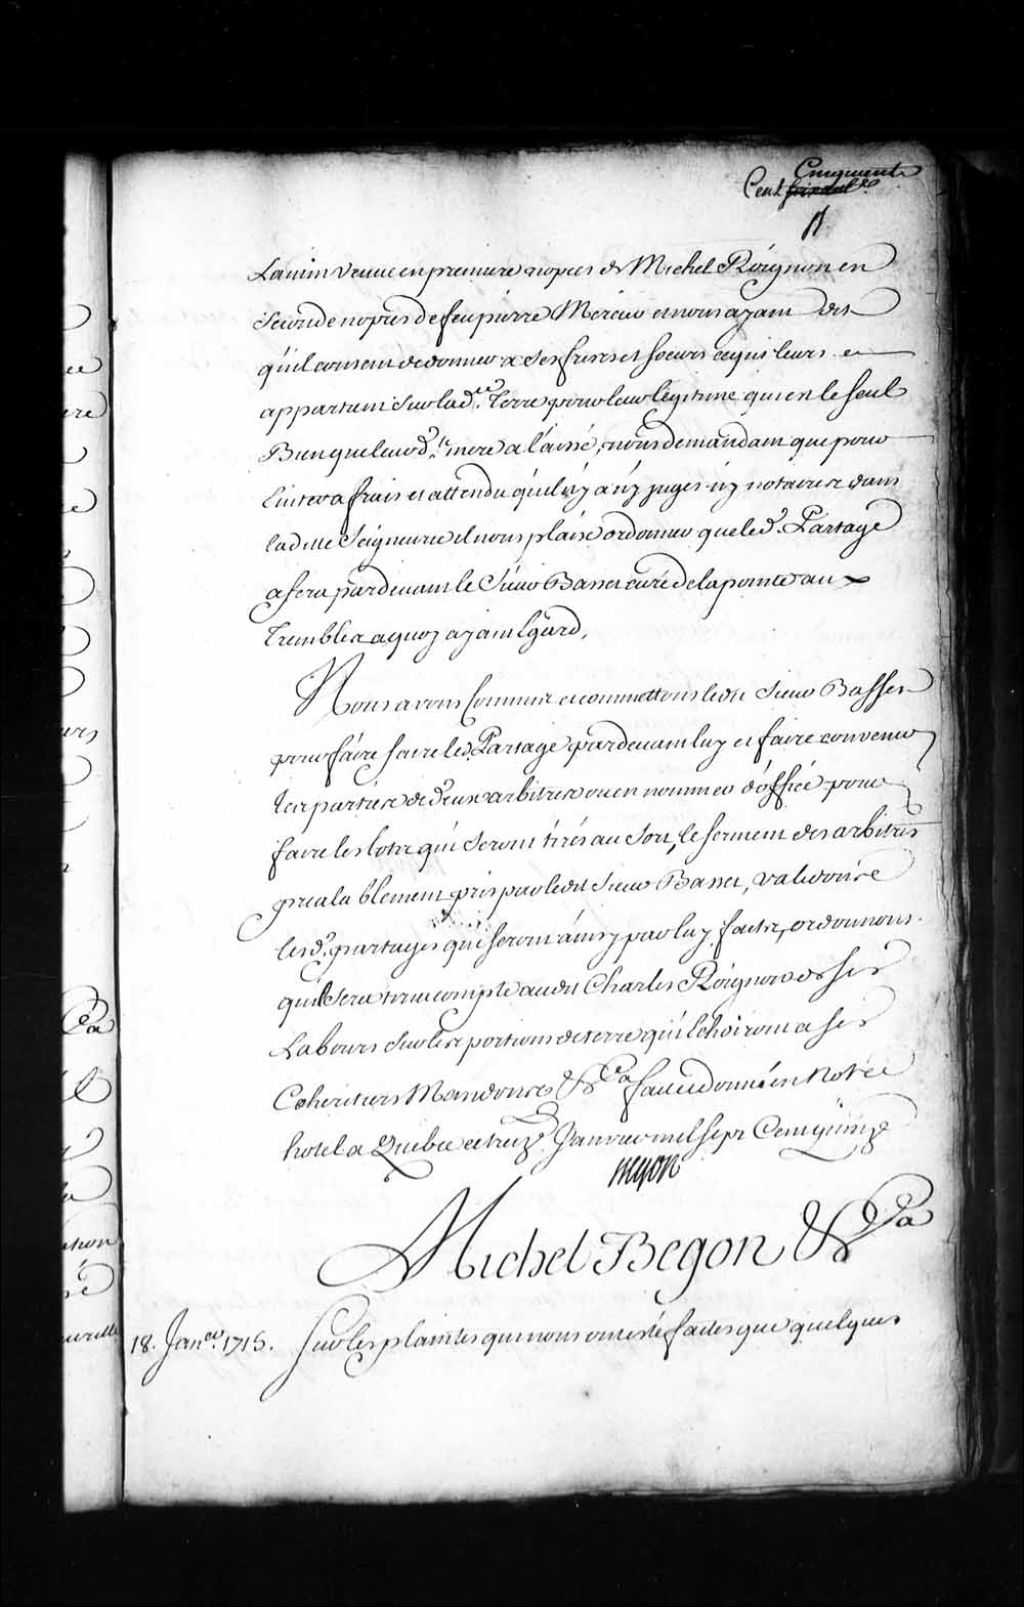 Cinquante
Cent soixante
Lanim veuve en premiere nopces de Michel Roignon en
seconde nopces de feu pierre Mercier et nous ayant dit
qu'il consent de donner a ses freres et soeurs ce qui leurs
appartient sur lad.te Terre pour leur legitime qui est le seul
Bien que leurd.te mere a laissé, nous demandant que pour
Eviter a frais et attendu qu'il n'y a n'y juges n'y notaires dans
ladite Seigneurie il nous plaise ordonner que led. Partage
se fera pardevant le Sieur Basset curé de la pointe aux
Trembles a quoy ayant Egard,
Nous avons Commis et commettons ledit Sieur Basset
pour faire faire led. Partage pardevant luy et faire convenir
les parties de deux arbitres ou en nommer d'office pour
faire les lots qui seront tirés au Sort, le serment des arbitres
prealablement pris par ledit Sieur Basset, validons
lesd. partages qui seront ainsy par luy faits, ordonnons
qu'il sera tenu compte audit Charles Roignon de ses
Labours sur les portions de terre qui Echoiront a ses
Coheritiers Mandons &ca fait et donné en Notre
hotel a Quebec le treize Janvier mil sept Cent quinze
Begon
Michel Begon &ca
18. Janer. 1715. Sur les plaintes qui nous ont esté faites que quelques